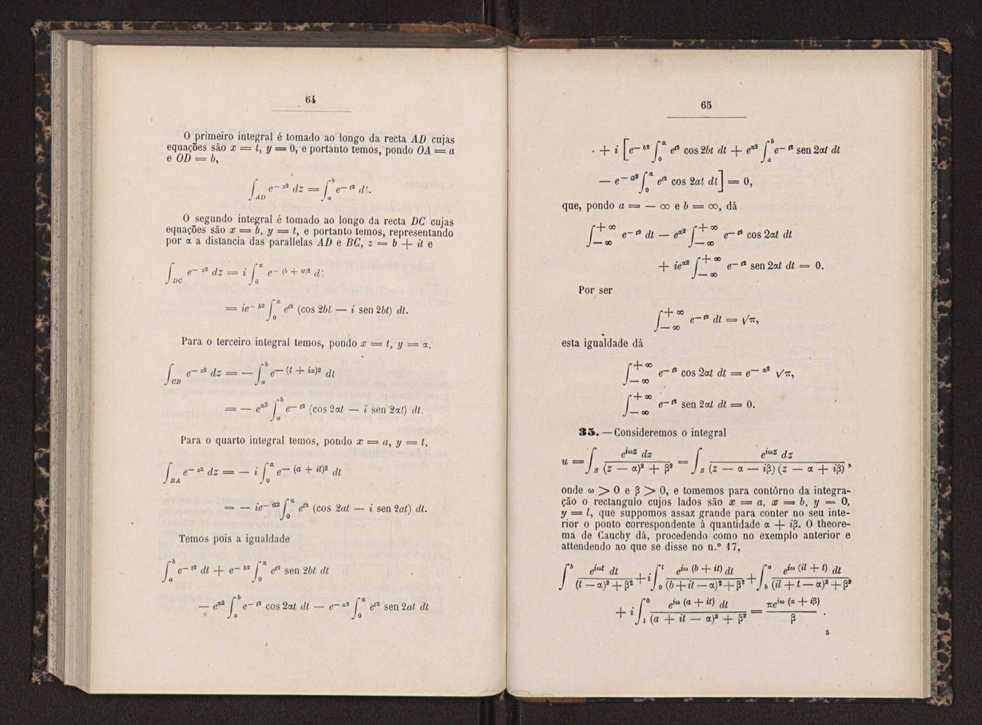 64
O primeiro integral é tomado ao longo da recta AD cujas
equações são x = t, y = 0, e portanto temos, pondo OA = a
e OD = b,
∫_{AD} e^{-z²} dz = ∫_a^b e^{-t²} dt.
O segundo integral é tomado ao longo da recta DC cujas
equações são x = b, y = t, e portanto temos, representando
por α a distancia das parallelas AD e BC, z = b + it e
∫_{DC} e^{-z²} dz = i ∫_0^α e^{-(b + it)²} d
= ie^{-b²} ∫_0^α e^{t²} (cos 2bt — i sen 2bt) dt.
Para o terceiro integral temos, pondo x = t, y = α.
∫_{CB} e^{-z²} dz = — ∫_a^b e^{-(t + iα)²} dt
= — e^{α²} ∫_a^b e^{-t²} (cos 2αt — i sen 2αt) dt.
Para o quarto integral temos, pondo x = a, y = t,
∫_{BA} e^{-z²} dz = — i ∫_0^α e^{-(a + it)²} dt
= — ie^{-a²} ∫_0^α e^{t²} (cos 2at — i sen 2at) dt.
Temos pois a igualdade
∫_a^b e^{-t²} dt + e^{-b²} ∫_0^α e^{t²} sen 2bt dt
— e^{α²} ∫_a^b e^{-t²} cos 2αt dt — e^{-a²} ∫_0^α e^{t²} sen 2at dt
65
+ i [e^{-b²} ∫_0^α e^{t²} cos 2bt dt + e^{α²} ∫_a^b e^{-t²} sen 2αt dt
— e^{-a²} ∫_0^α e^{t²} cos 2at dt] = 0,
que, pondo a = — ∞ e b = ∞, dá
∫_{—∞}^{+∞} e^{-t²} dt — e^{α²} ∫_{—∞}^{+∞} e^{-t²} cos 2αt dt
+ ie^{α²} ∫_{—∞}^{+∞} e^{-t²} sen 2αt dt = 0.
Por ser
∫_{—∞}^{+∞} e^{-t²} dt = √π,
esta igualdade dá
∫_{—∞}^{+∞} e^{-t²} cos 2αt dt = e^{-α²} √π,
∫_{—∞}^{+∞} e^{-t²} sen 2αt dt = 0.
35. — Consideremos o integral
u = ∫_S e^{iωz} dz / ((z — α)² + β²) = ∫_S e^{iωz} dz / ((z — α — iβ) (z — α + iβ)),
onde ω > 0 e β > 0, e tomemos para contôrno da integra-
ção o rectangulo cujos lados são x = a, x = b, y = 0,
y = l, que suppomos assaz grande para conter no seu inte-
rior o ponto correspondente á quantidade α + iβ. O theore-
ma de Cauchy dá, procedendo como no exemplo anterior e
attendendo ao que se disse no n.º 17,
∫_a^b e^{iωt} dt / ((t — α)² + β²) + i ∫_0^l e^{iω (b + it)} dt / ((b + it — α)² + β²) + ∫_b^a e^{iω (il + t)} dt / ((il + t — α)² + β²)
+ i ∫_l^0 e^{iω (a + it)} dt / ((a + it — α)² + β²) = πe^{iω (α + iβ)} / β.
5